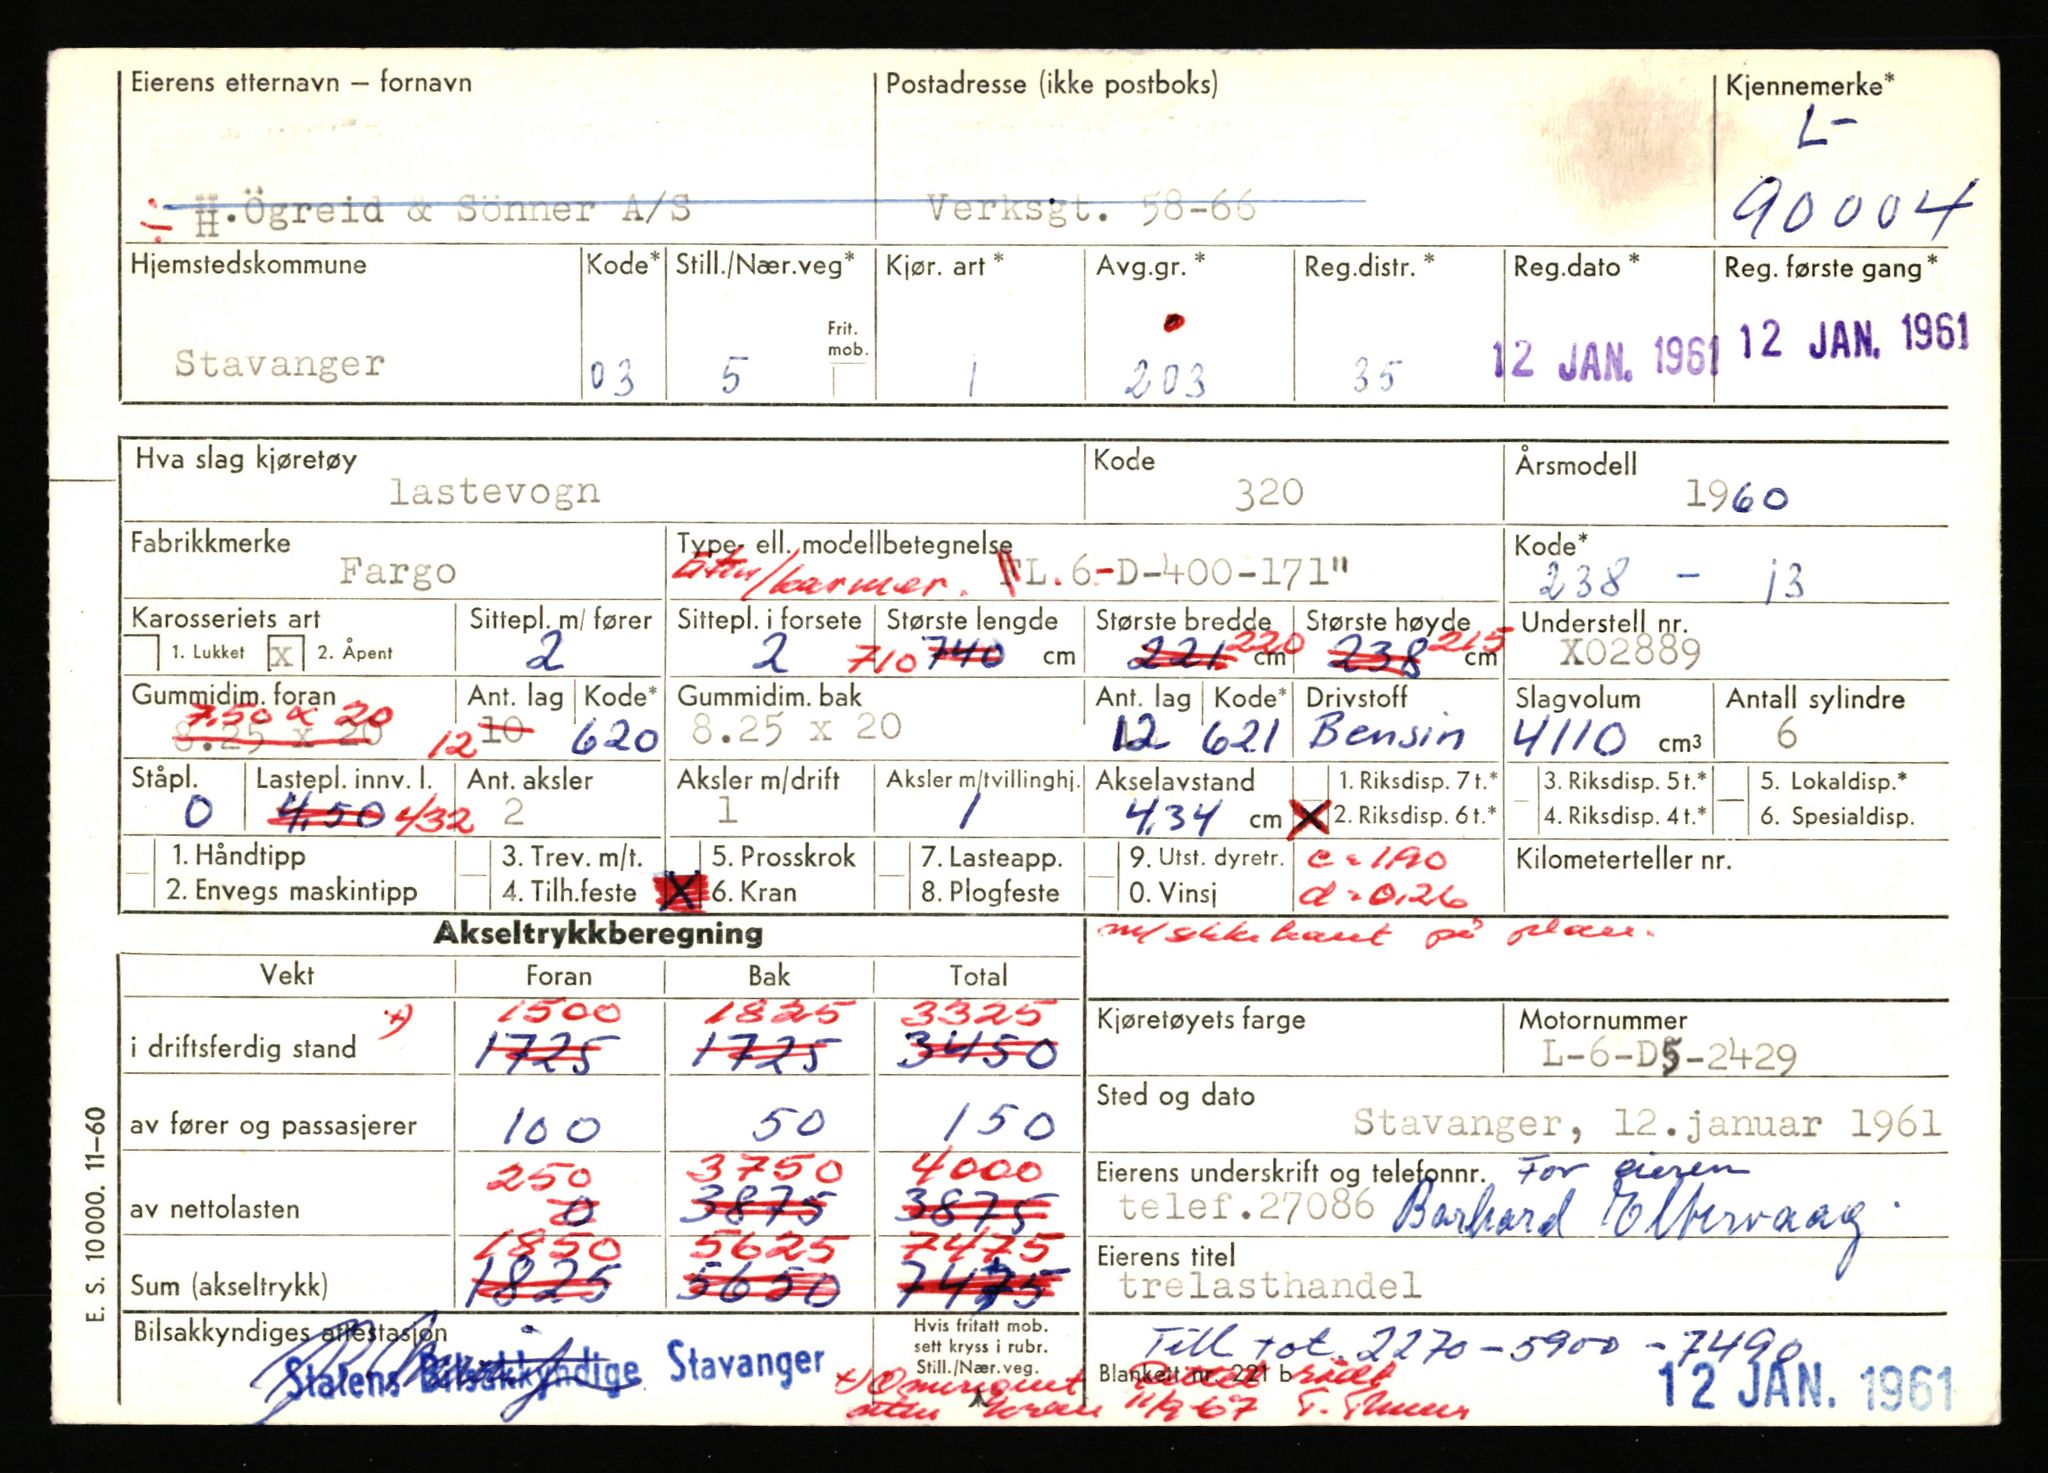 Eierens etternavn — fornavn Postadresse (ikke postboks) Kjennemerke*
L-
H.Ögreid & Sönner A/S Verksgt. 58-66 90004
Hjemstedskommune Kode* Still./Nær.veg* Kjør. art* Avg.gr.* Reg.distr.* Reg.dato* Reg. første gang*
Frit. mob.
Stavanger 03 5 1 203 35 12 JAN. 1961 12 JAN. 1961
Hva slag kjøretøy Kode Årsmodell
lastevogn 320 1960
Fabrikkmerke Type- ell. modellbetegnelse Kode*
Fargo karmer. "L.6-D-400-171" 238 - 13
Karosseriets art Sittepl. m/ fører Sittepl. i forsete Største lengde Største bredde Største høyde Understell nr.
1. Lukket x 2. Åpent 2 2 710 740 cm 221 220 cm 238 215 cm X02889
Gummidim. foran Ant. lag Kode* Gummidim. bak Ant. lag Kode* Drivstoff Slagvolum Antall sylindre
7.50 x 20
8.25 x 20 12 10 620 8.25 x 20 12 621 Bensin 4110 cm3 6
Ståpl. Lastepl. innv. l. Ant. aksler Aksler m/drift Aksler m/tvillinghj. Akselavstand 1. Riksdisp. 7 t.* 3. Riksdisp. 5 t.* 5. Lokaldisp.*
0 4,50 432 2 1 1 4,34 cm X 2. Riksdisp. 6 t.* 4. Riksdisp. 4 t.* 6. Spesialdisp.
1. Håndtipp 3. Trev. m/t. 5. Prosskrok 7. Lasteapp. 9. Utst. dyretr. c = 1,90 Kilometerteller nr.
2. Envegs maskintipp 4. Tilh.feste X 6. Kran 8. Plogfeste 0. Vinsj d = 0,26
Akseltrykkberegning
på plan.
Vekt Foran Bak Total
1500 1825 3325
Kjøretøyets farge Motornummer
i driftsferdig stand x) 1725 1725 3450 L-6-D5-2429
Sted og dato
av fører og passasjerer 100 50 150 Stavanger, 12.januar 1961
250 3750 4000 Eierens underskrift og telefonnr. For eieren
av nettolasten 0 3875 3875 telef.27086
1850 5625 7475 Eierens titel
Sum (akseltrykk) 1825 5650 7475 trelasthandel
Bilsakkyndiges attestasjon Hvis fritatt mob. sett kryss i rubr. Still./Nær.veg. Till tot. 2270 - 5900 - 7490
Statens Bilsakkyndige Stavanger Blankett nr. 221 b 12 JAN. 1961
E. S. 10000. 11-60